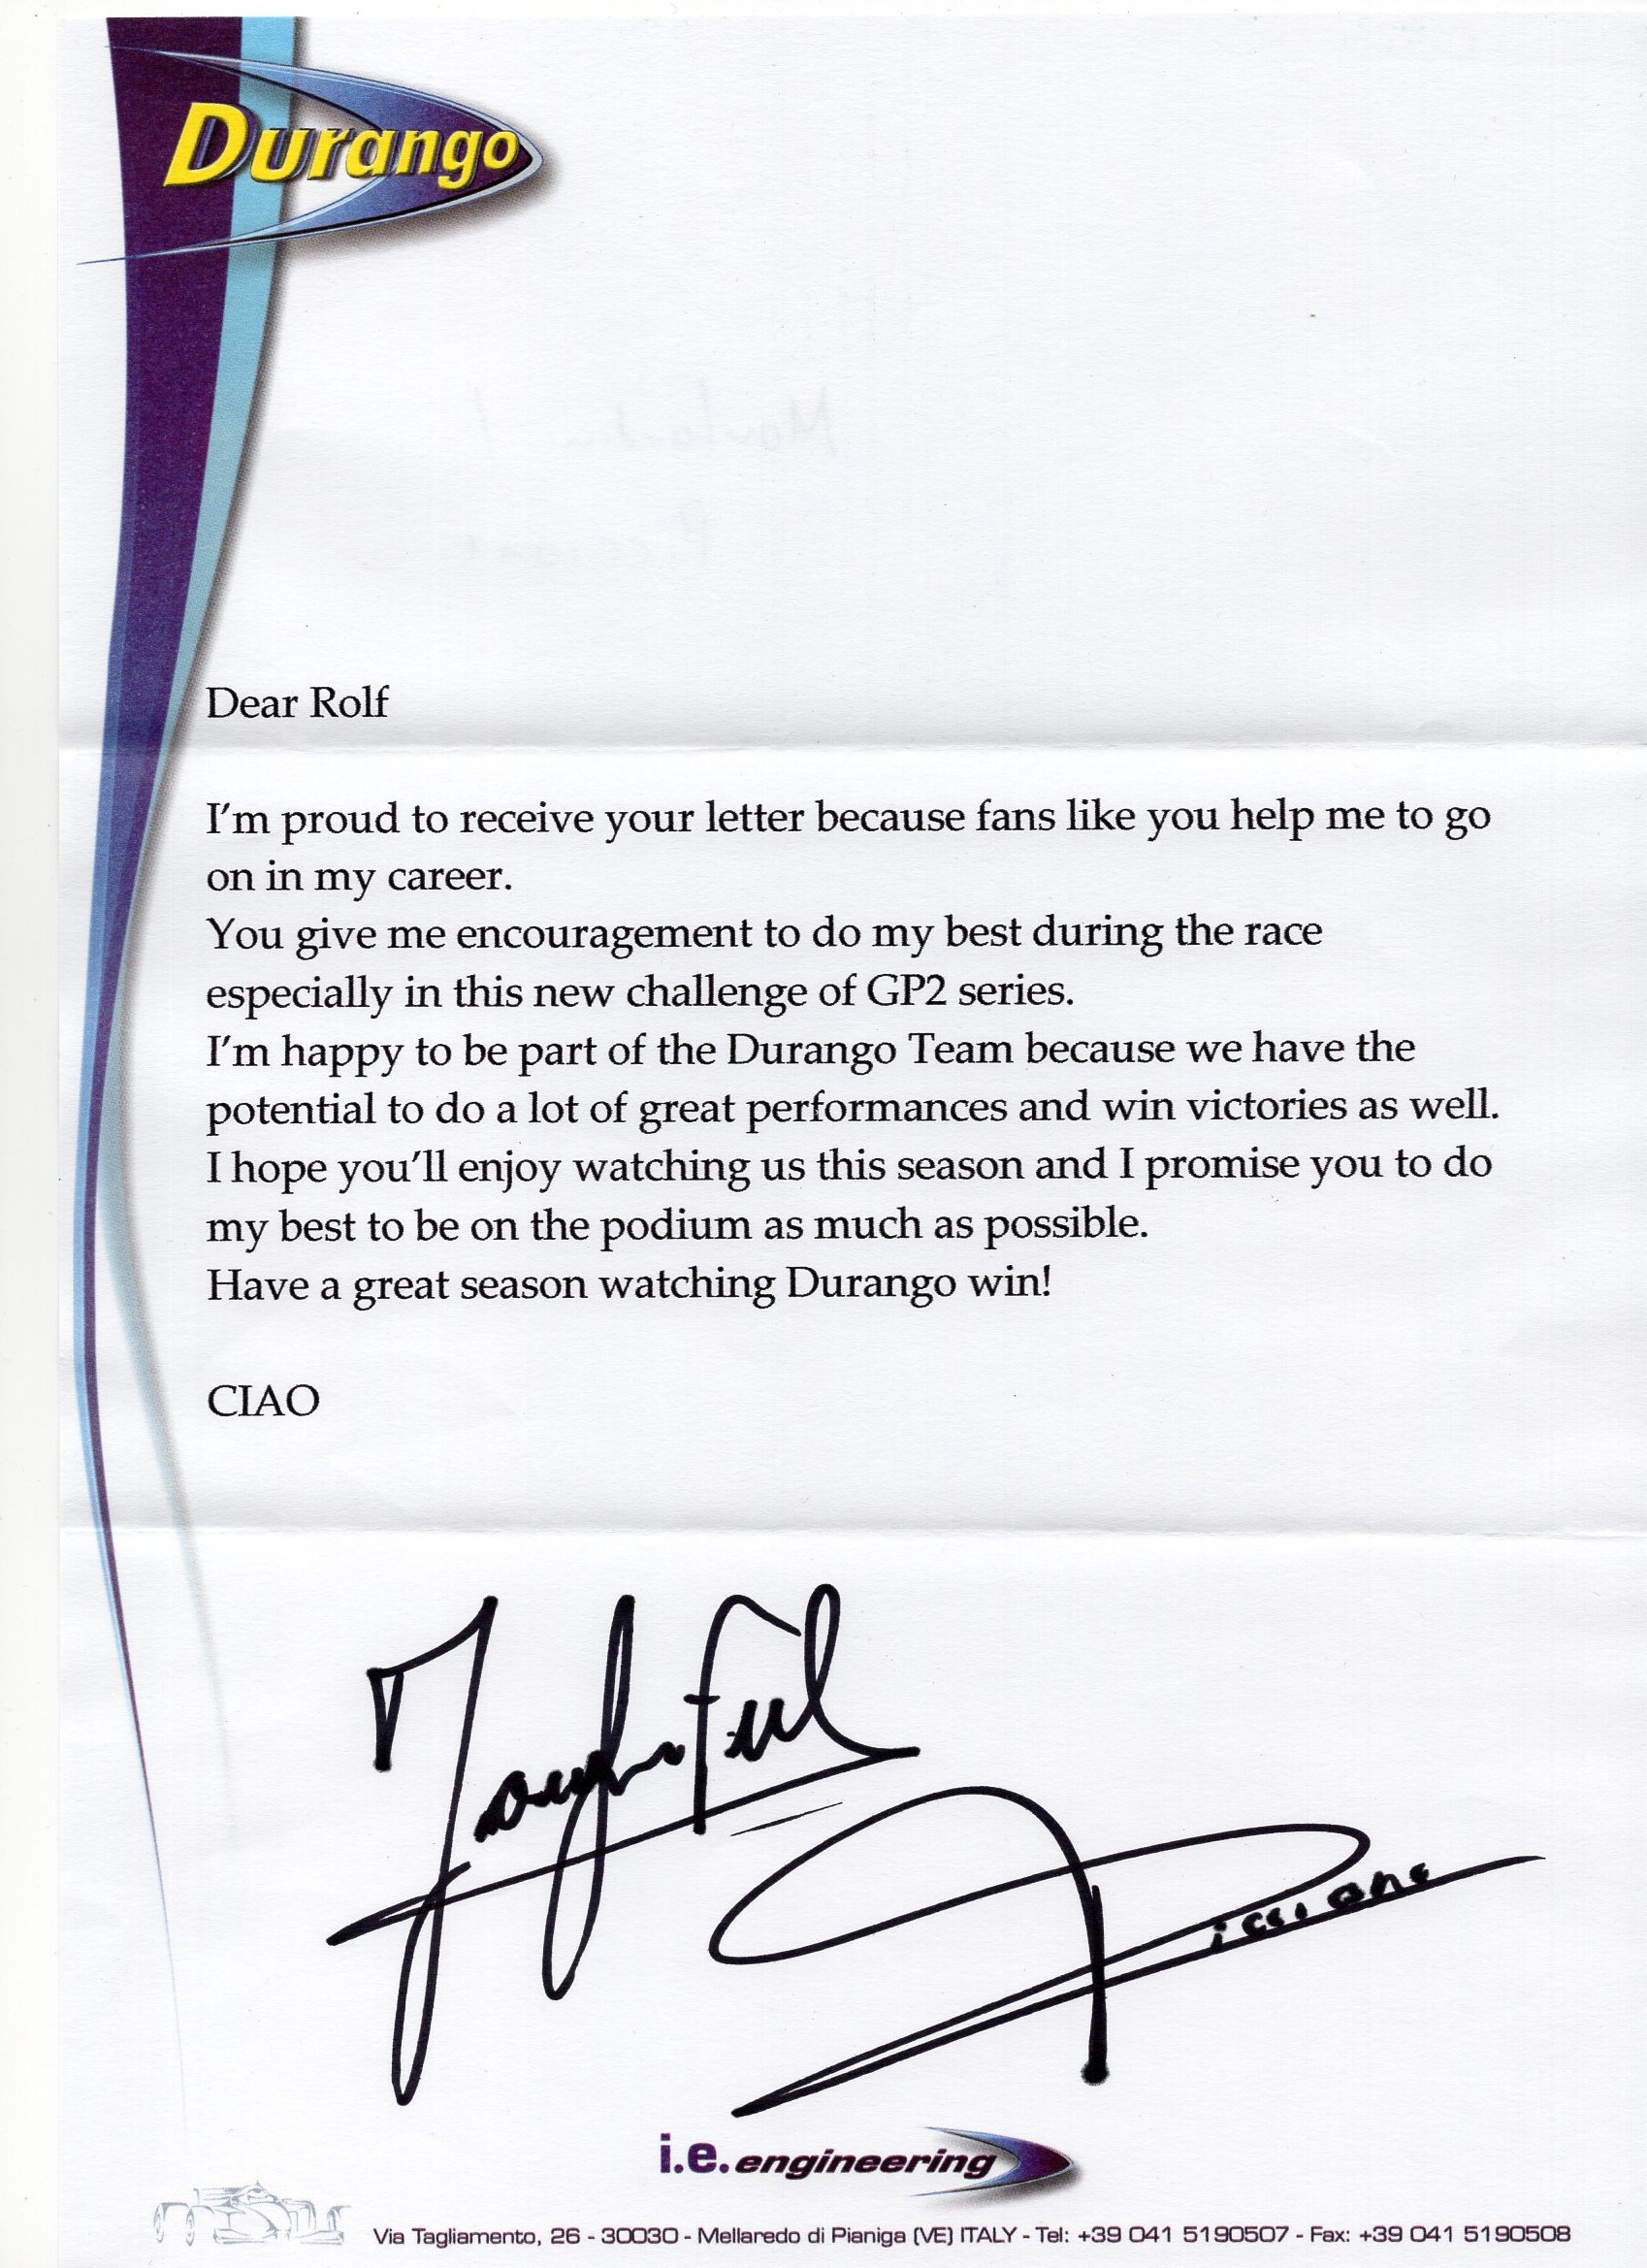 Durango
Dear Rolf
I'm proud to receive your letter because fans like you help me to go
on in my career.
You give me encouragement to do my best during the race
especially in this new challenge of GP2 series.
I'm happy to be part of the Durango Team because we have the
potential to do a lot of great performances and win victories as well.
I hope you'll enjoy watching us this season and I promise you to do
my best to be on the podium as much as possible.
Have a great season watching Durango win!
CIAO
i.e.engineering
Via Tagliamento, 26 - 30030 - Mellaredo di Pianiga (VE) ITALY - Tel: +39 041 5190507 - Fax: +39 041 5190508